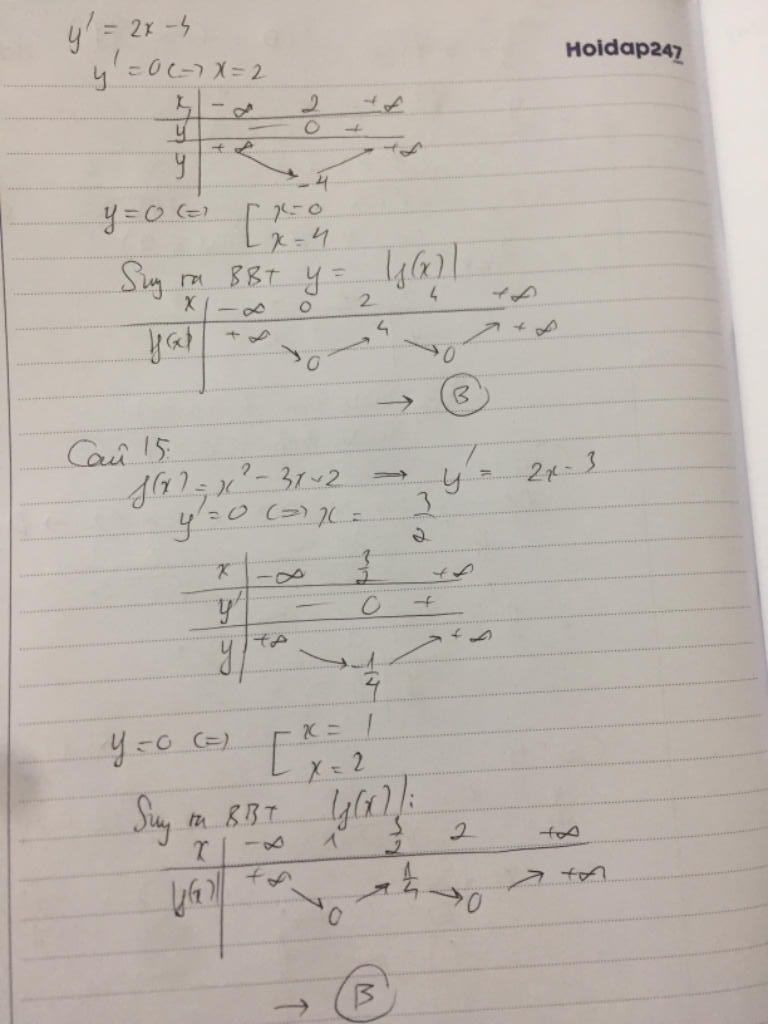 Hoidap247
y' = 2x - 4
y' = 0 (=) x = 2
x | -∞ 2 +∞
y' | - 0 +
y | +∞ ↘ -4 ↗ +∞
y = 0 (=) [ x = 0
x = 4
Suy ra BBT y = |f(x)|
x | -∞ 0 2 4 +∞
|f(x)| | +∞ ↘ 0 ↗ 4 ↘ 0 ↗ +∞
→ B
Câu 15:
f(x) = x² - 3x + 2 → y' = 2x - 3
y' = 0 (=) x = 3/2
x | -∞ 3/2 +∞
y' | - 0 +
y | +∞ ↘ -1/4 ↗ +∞
y = 0 (=) [ x = 1
x = 2
Suy ra BBT |f(x)|:
x | -∞ 1 3/2 2 +∞
|f(x)| | +∞ ↘ 0 ↗ 1/4 ↘ 0 ↗ +∞
→ B